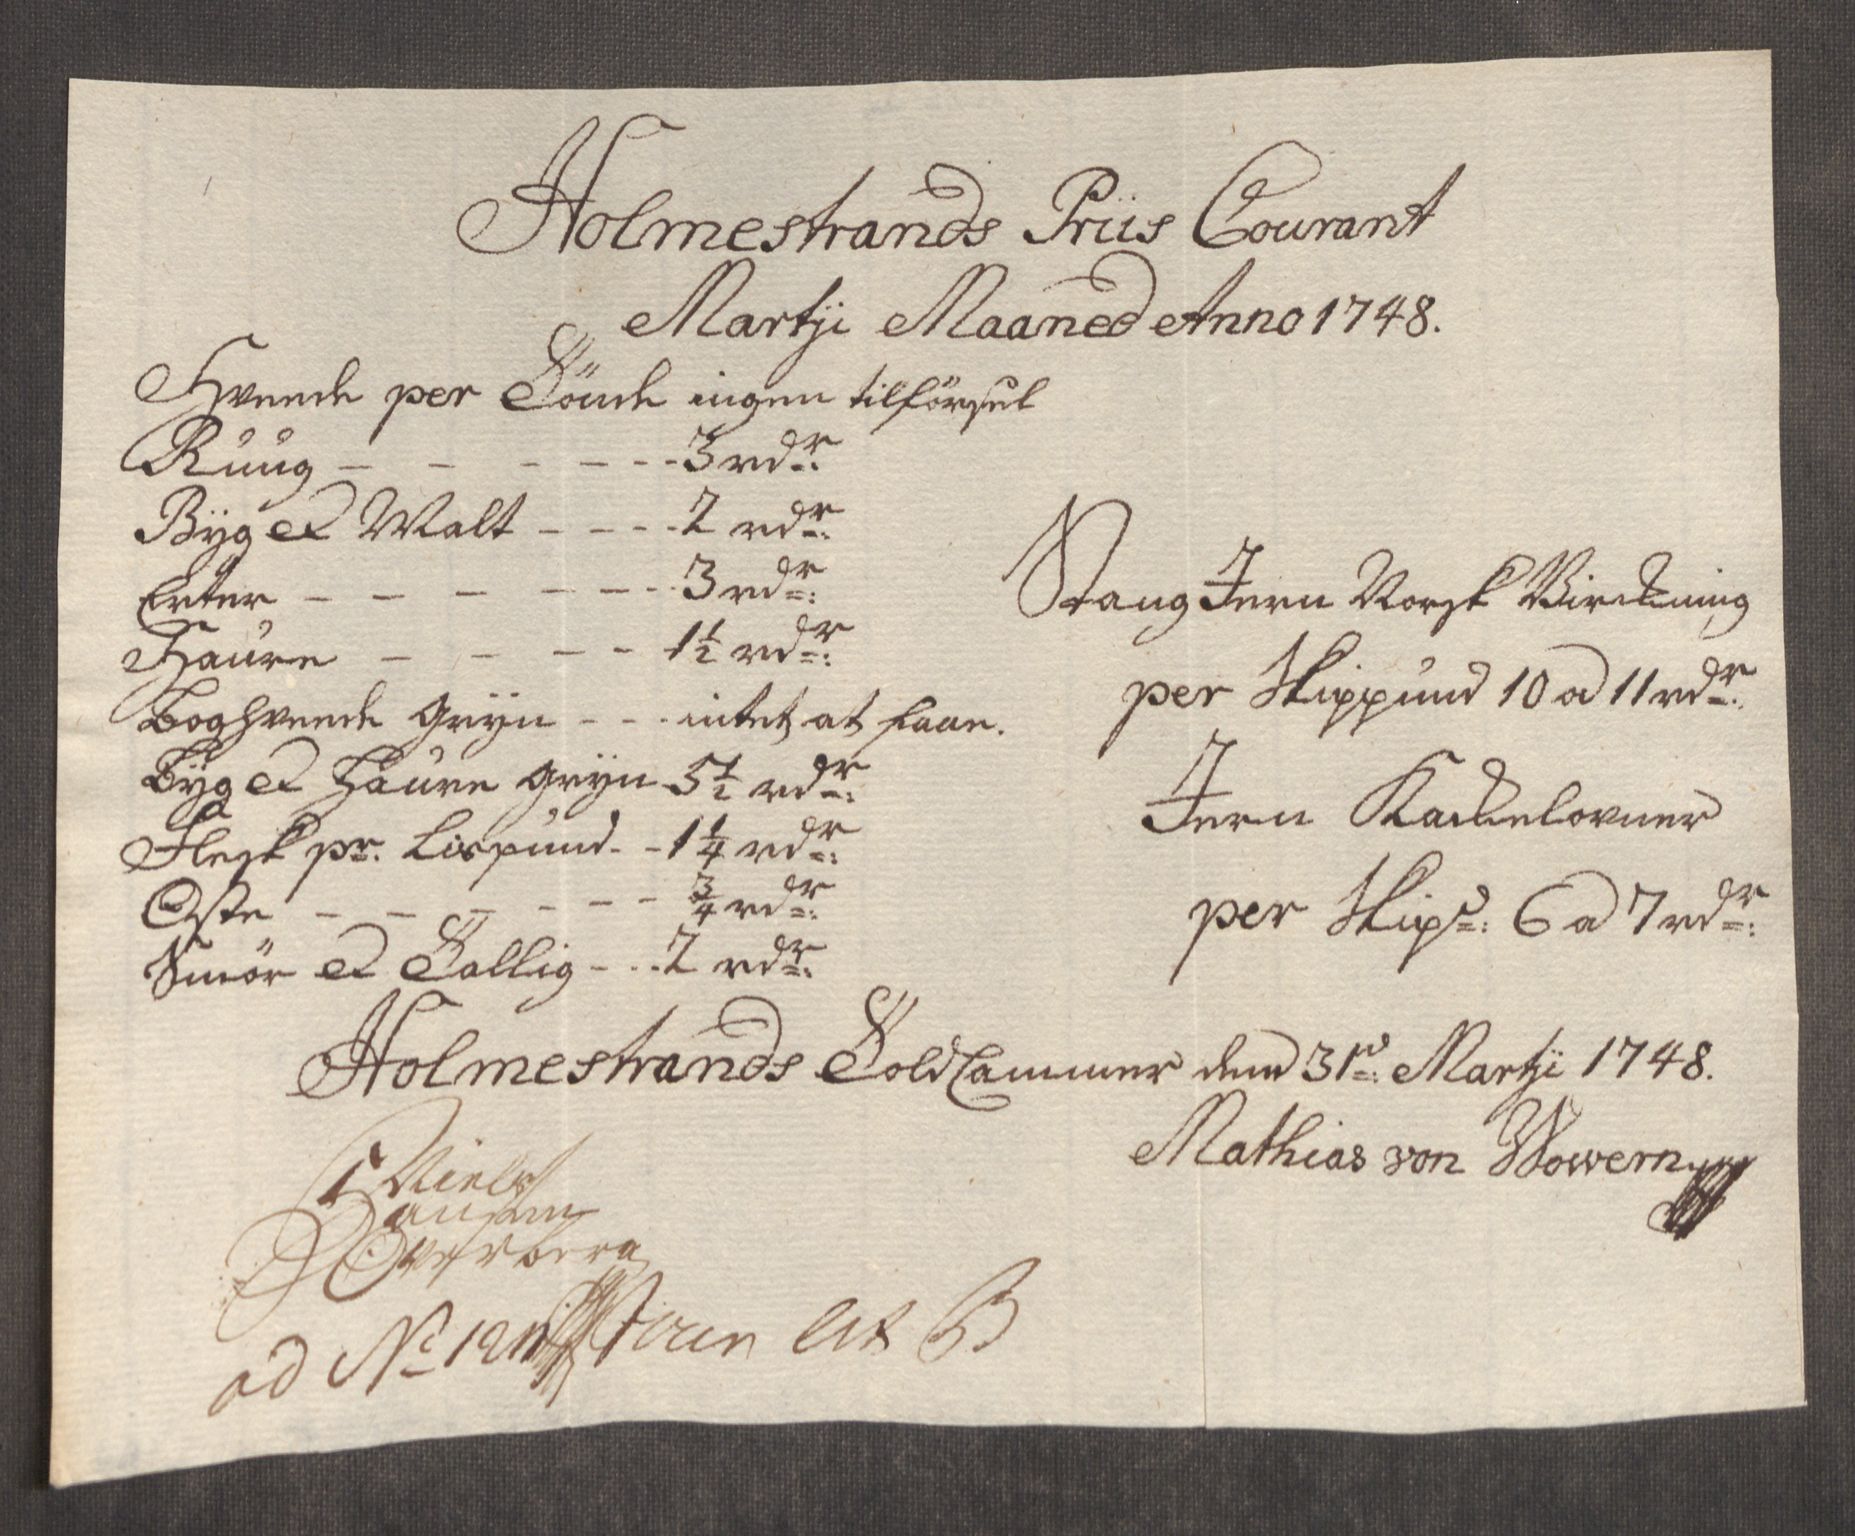 Holmestrands Priis Courant
Martji Maaned Anno 1748.
Hveede per Tönde ingen tilförsel
Ruug - - - - - - 3 rdr:
Byg et Malt - - - - 2 rdr:
Erter - - - - - - - 3 rdr:
Haure - - - - 1½ rdr:
Boghveede gryn - - - intet at faae.
Byg et Haure gryn 5½ rdr:
Flesk pr. Lispund - - 1¼ rdr:
Oste - - - - - - ¾ rdr:
Smör et Tallig - - - 2 rdr:
Stang Jern Norsk Virckning
per Skippund 10 a 11 rdr:
Jern Kackelovner
per Skipd: 6 a 7 rdr:
Holmestrands Told Cammer dend 31d: Martji 1748.
Mathias von Wowern
Niels
ad No
Lit B